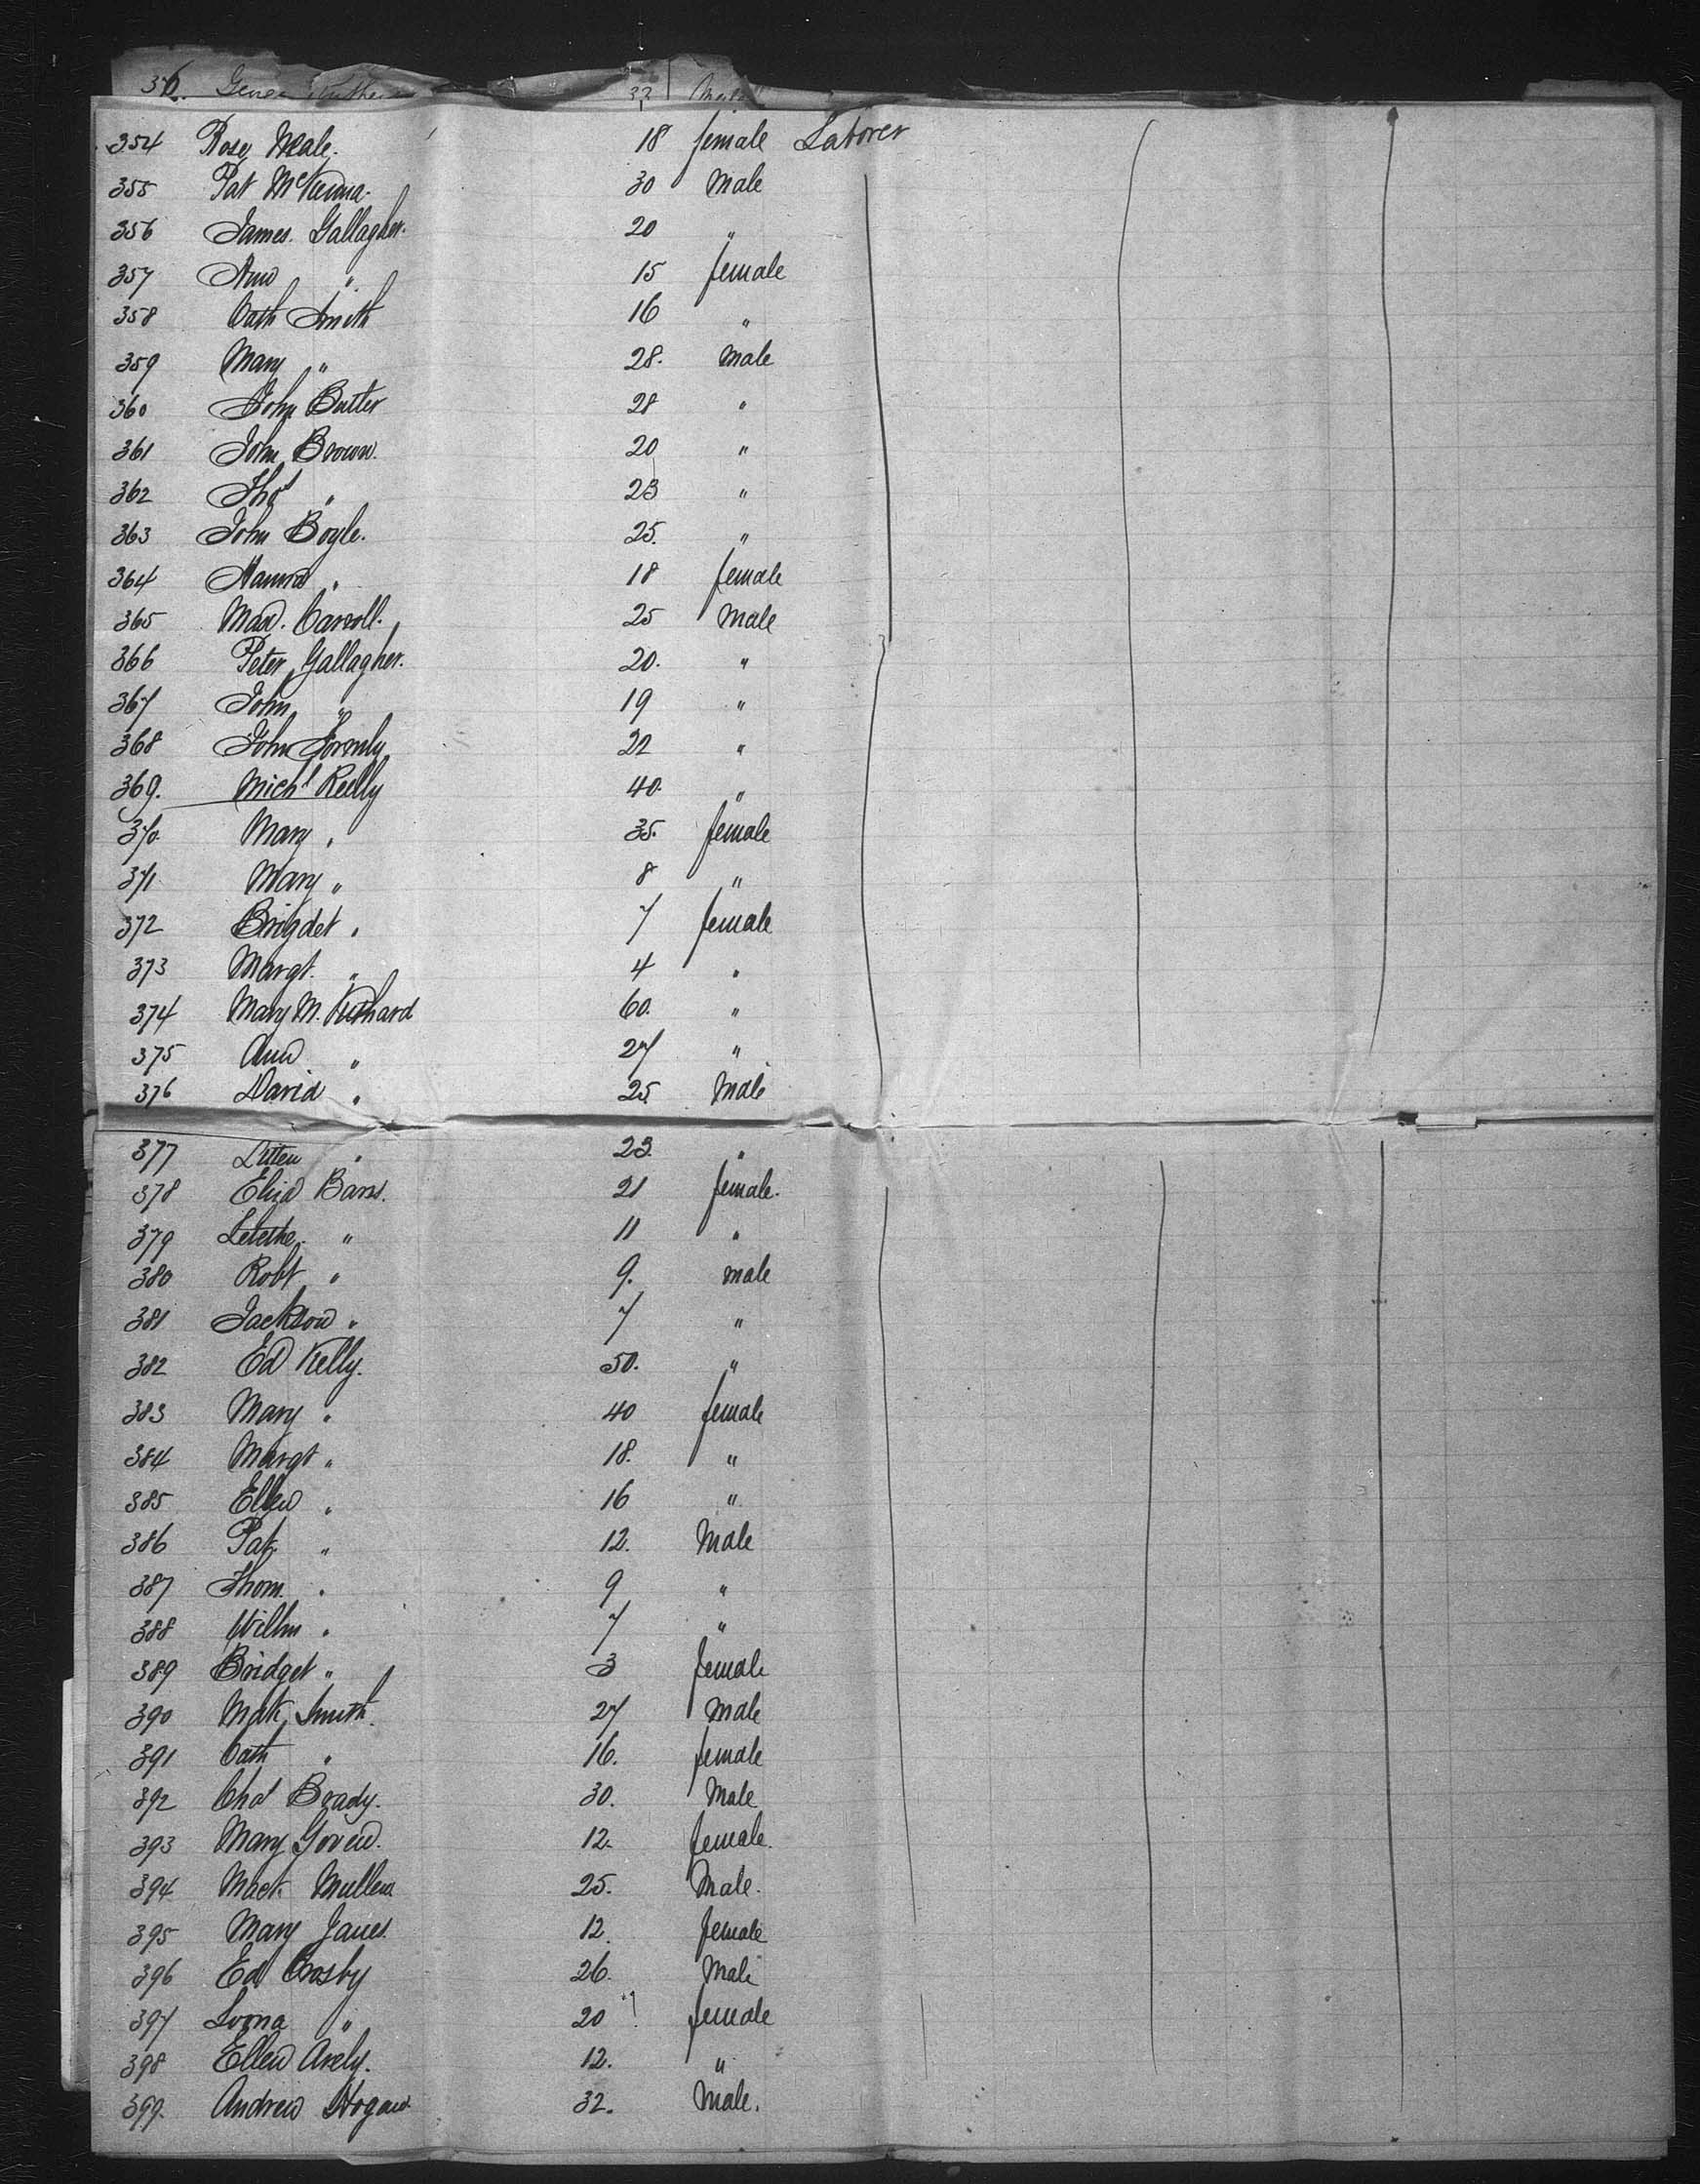 354 Rose Neale. 18 female Laborer
355 Pat McKenna. 30 male
356 James. Gallagher. 20 "
357 Ann " 15 female
358 Cath Smith 16 "
359 Mary " 28. male
360 John Butler 28 "
361 John Brown. 20 "
362 Thos " 23 "
363 John Boyle. 25. "
364 Hanna " 18 female
365 Carroll. 25 male
366 Peter Gallagher. 20. "
367 John " 19 "
368 John 22 "
369. Michl Reilly 40. "
370. Mary " 35. female
371 Mary " 8 "
372 Brigdet " 7 female
373 Margt. " 4 "
374 Mary M. 60. "
375 Ann " 27 "
376 David " 25. male
377 " 23. "
378 Eliza 21 female.
379 " 11 "
380 Robt " 9. male
381 Jackson " 7 "
382 Ed Kelly. 50. "
383 Mary " 40 female
384 Margt " 18. "
385 Ellen " 16 "
386 Pat. " 12. male
387 Thom. " 9 "
388 Willm " 7 "
389 Bridget " 3 female
390 Smith. 27 male
391 Cath " 16. female
392 Chas Brady. 30. male
393 Mary 12. female.
394 Mullen 25. male.
395 Mary 12. female
396 Ed Crosby 26. male
397 " 20 female
398 Ellen 12. "
399. Andrew Hogan. 32. male.